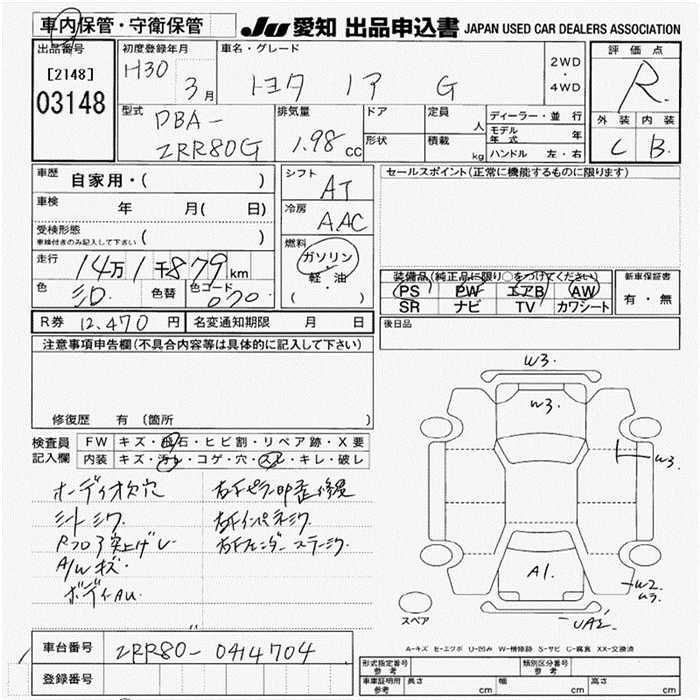 車内保管・守衛保管
JU 愛知 出品申込書 JAPAN USED CAR DEALERS ASSOCIATION
出品番号
[2148]
03148
初度登録年月
H30
3月
車名・グレード
トヨタ ノア G
2WD
・
4WD
評価点
R
外装 内装
C B
型式
DBA-
ZRR80G
排気量
1.98 cc
ドア
形状
定員
人
積載
kg
ディーラー・並行
モデル年式 年
ハンドル 左・右
車歴
自家用・( )
車検
年 月( 日)
受検形態
車検付きのみ記入して下さい ( )
走行
14万1千879km
色
色替
色コード
070
シフト
AT
冷房
AAC
燃料
ガソリン・
軽・油
( )
セールスポイント(正常に機能するものに限ります)
装備品(純正品に限り○をつけてください)
PS PW エアB AW
SR ナビ TV カワシート
新車保証書
有・無
R券 12,470 円
名変通知期限 月 日
後日品
注意事項申告欄(不具合内容等は具体的に記入して下さい)
修復歴 有 〔箇所 〕
検査員
記入欄
FW キズ・飛石・ヒビ割・リペア跡・X要
内装 キズ・汚れ・コゲ・穴・スレ・キレ・破レ
オーディオ欠穴
シートシワ
A/Wキズ
ボディAU.
W3.
W3.
W3.
A1.
W2
UA2
スペア
A-キズ E-エクボ U-凹み W-補修跡 S-サビ C-腐食 XX-交換済
車台番号
ZRR80-0414704
登録番号
形式指定番号
参考
類別区分番号
参考
車庫証明用
参考
長さ cm
幅 cm
高さ cm